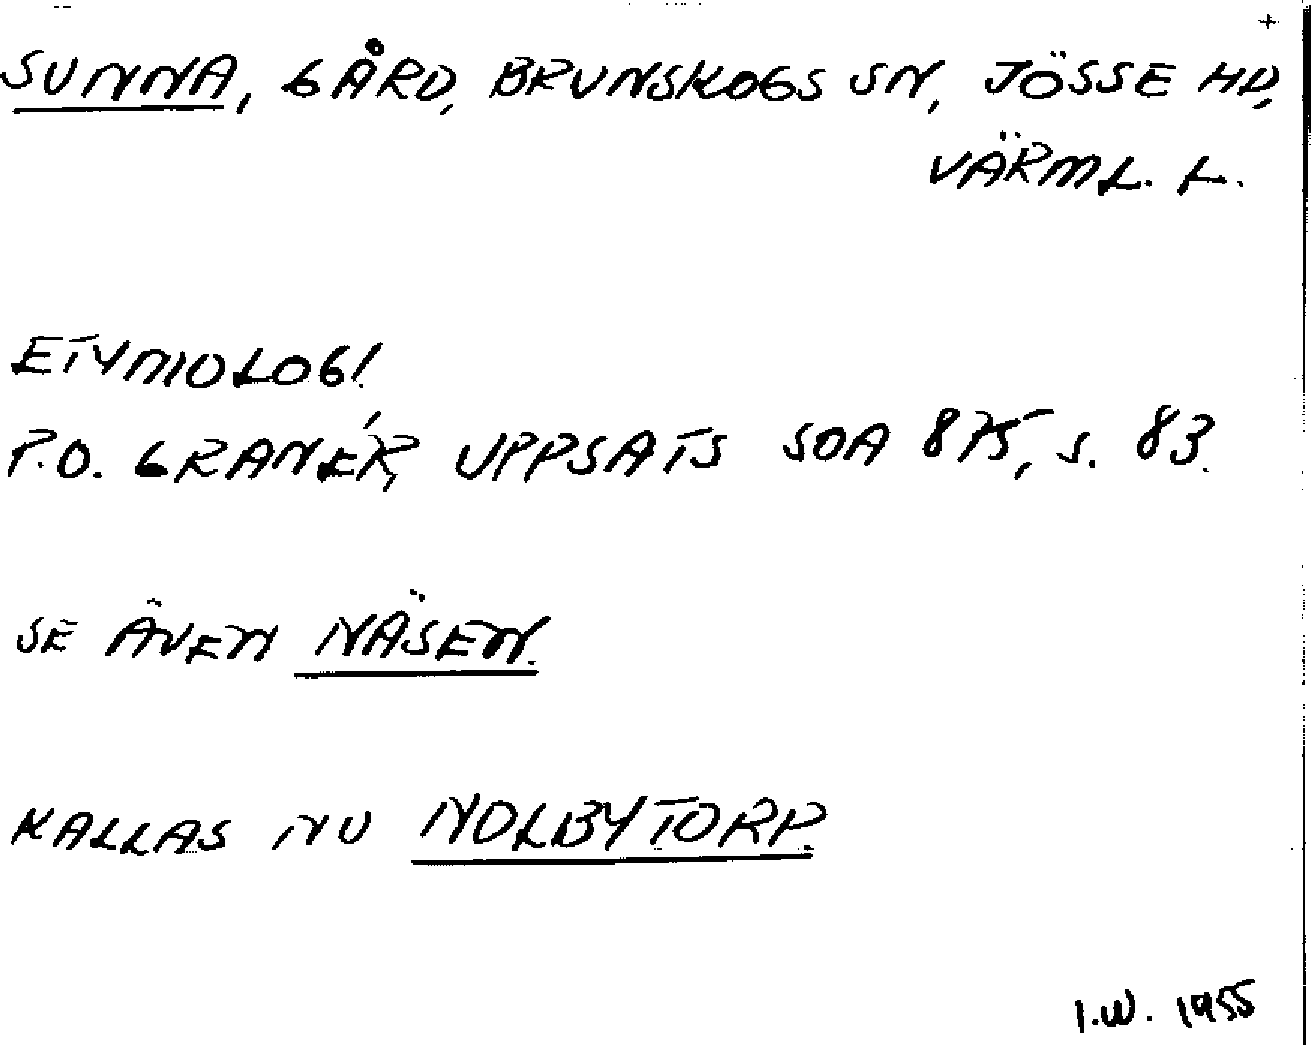 +
SUNNA, GÅRD, BRUNSKOGS SN, JÖSSE HD,
VÄRML. L.
ETYMOLOGI.
P.O. GRANÉR, UPPSATS SOA 875, S. 83.
SE ÄVEN NÄSEN.
KALLAS NU NOLBYTORP.
I.W. 1955